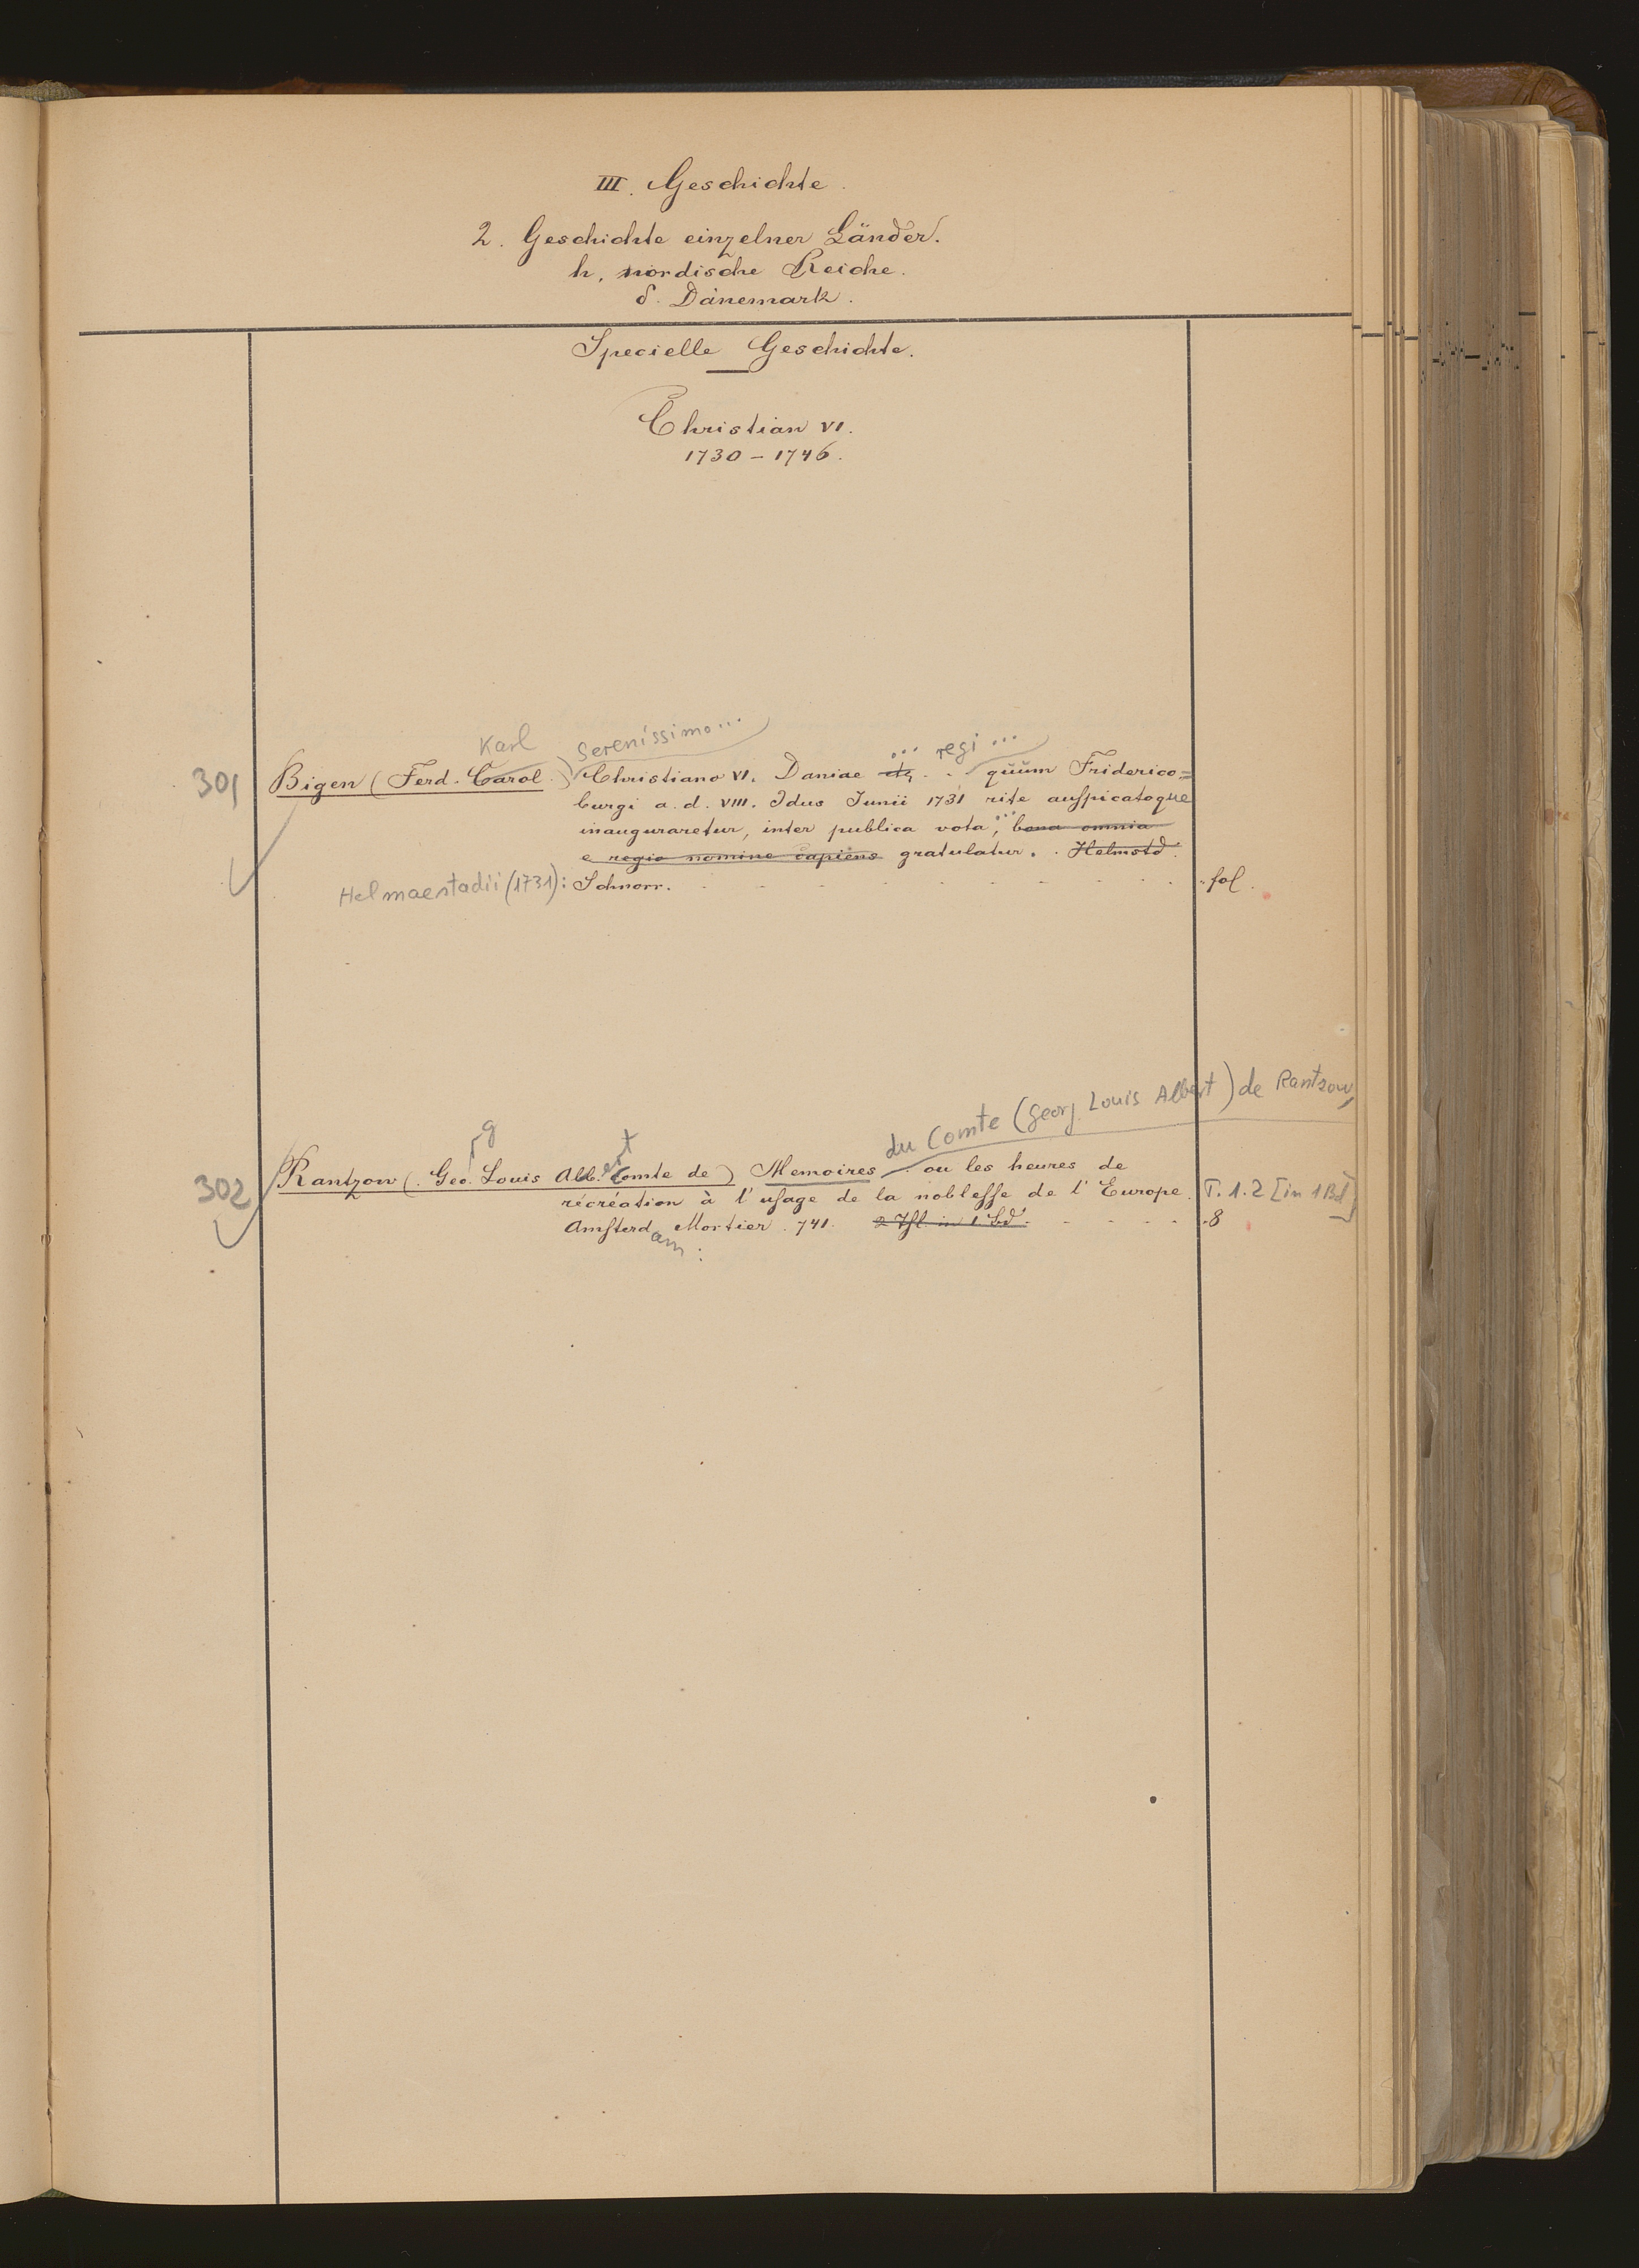 III. Geschichte.
2. Geschichte einzelner Länder.
h. nordische Reiche.
δ. Dänemark.
Specielle Geschichte.
Christian VI.
1730 – 1746.
Karl Serenissimo... ... regi ...
301 Bigen (Ferd. Carol.) Christiano VI. Daniae etz. . quum Friderico=
burgi a. d. VIII. Idus Junii 1731 rite auspicatoque
inauguraretur, inter publica vota, ... bona omnia
e regio nomine capiens gratulatur. . Helmstd.
Helmaestadii (1731): Schnorr. fol.
du Comte (Georg Louis Albert) de Rantzow,
rg ert
302 Rantzow (. Geo. Louis Alb. Comte de) Memoires . ou les heures de
récréation à l'usage de la noblesse de l'Europe. T. 1. 2 [in 1 Bd]
Amsterd Mortier . 741. 2 Thl. in 1 Bd. 8
am :